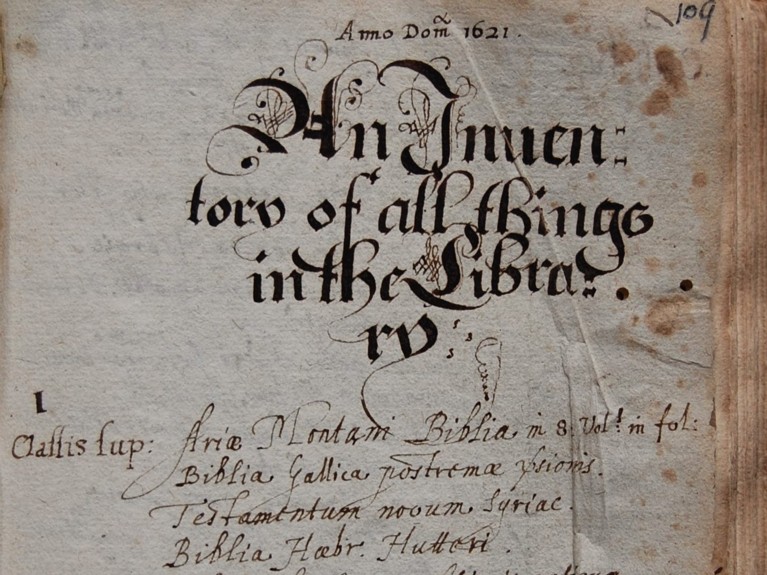 109
Anno Dom̃ 1621.
An Inuen:
tory of all things
in the Libra:
ry:
1
Classis sup: Ariæ Montani Biblia in 8. Vol! in fol:
Biblia Gallica postremæ
Testamentum novum Syriac.
Biblia Hæbr. Hutteri.